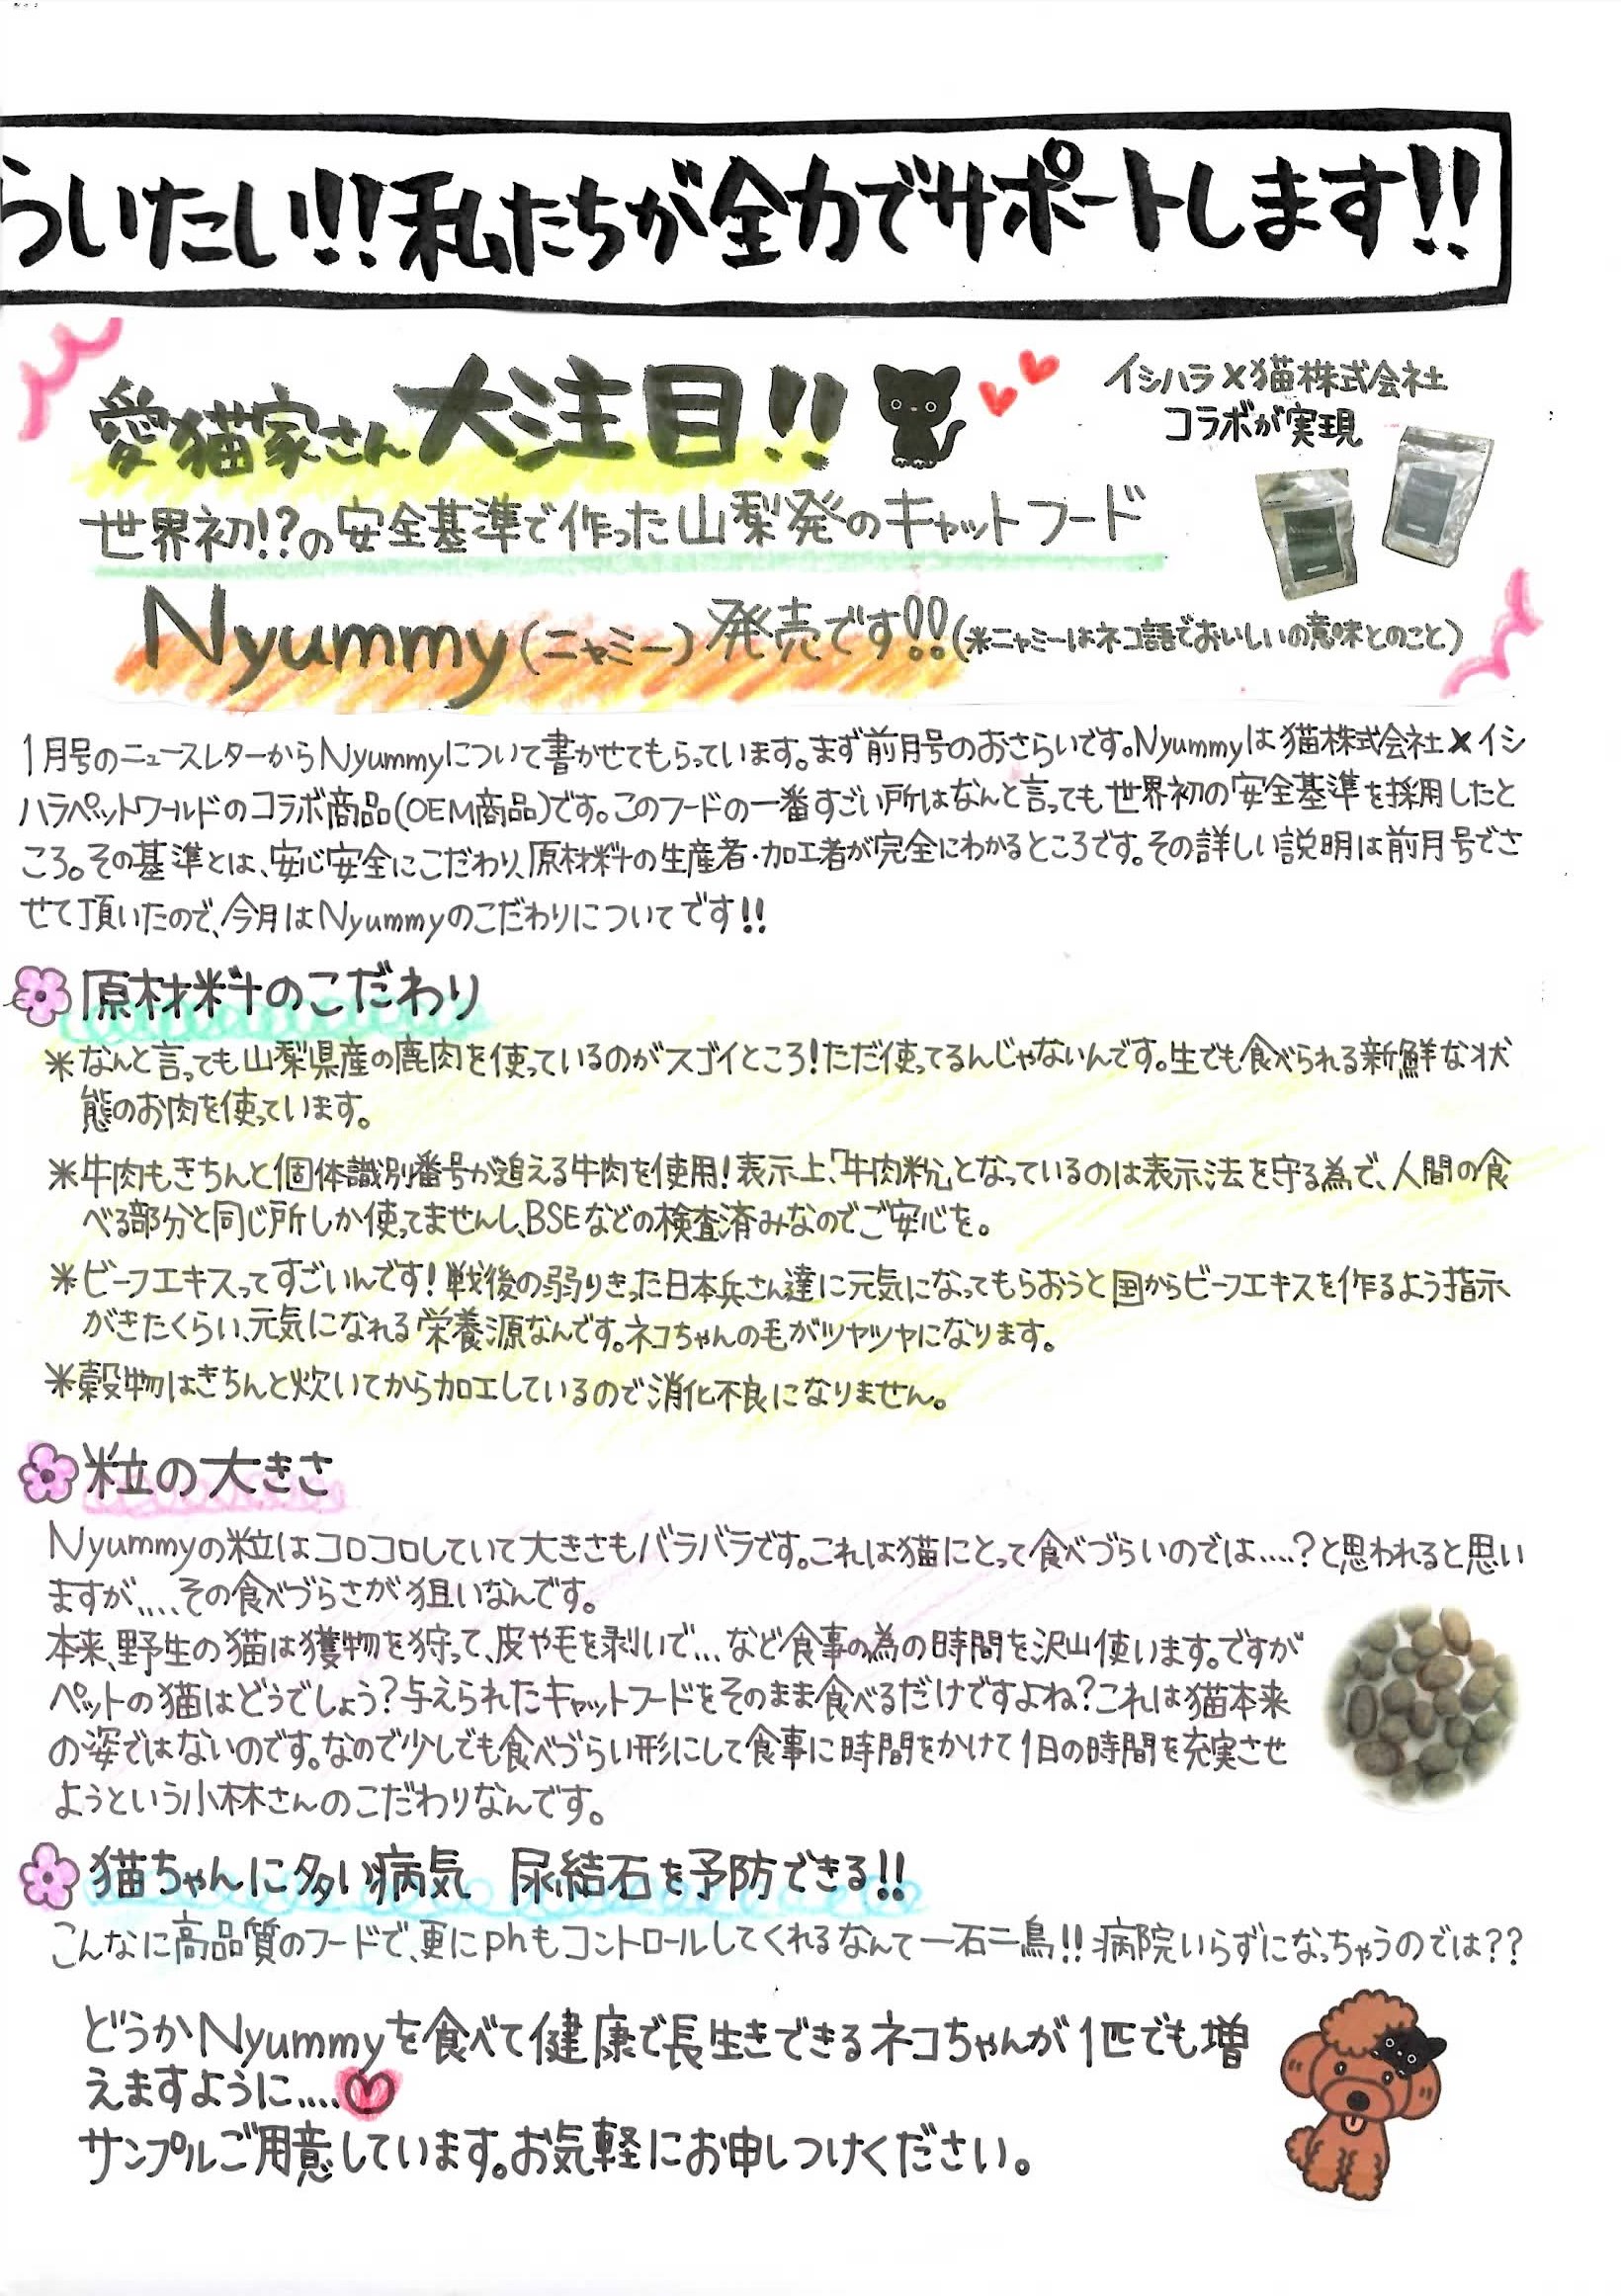 らいたい!!私たちが全力でサポートします!!
愛猫家さん大注目!!
イシハラ×猫株式会社
コラボが実現
世界初!?の安全基準で作った山梨発のキャットフード
Nyummy(ニャミー)発売です!!(※ニャミーはネコ語でおいしいの意味とのこと)
1月号のニュースレターからNyummyについて書かせてもらっています。まず前月号のおさらいです。Nyummyは猫株式会社×イシ
ハラペットワールドのコラボ商品(OEM商品)です。このフードの一番すごい所はなんと言っても世界初の安全基準を採用したと
ころ。その基準とは、安心安全にこだわり、原材料の生産者・加工者が完全にわかるところです。その詳しい説明は前月号でさ
せて頂いたので、今月はNyummyのこだわりについてです!!
原材料のこだわり
※なんと言っても山梨県産の鹿肉を使っているのがスゴイところ!ただ使ってるんじゃないんです。生でも食べられる新鮮な状
態のお肉を使っています。
※牛肉もきちんと個体識別番号が追える牛肉を使用!表示上、「牛肉粉」となっているのは表示法を守る為で、人間の食
べる部分と同じ所しか使ってませんし、BSEなどの検査済みなのでご安心を。
※ビーフエキスってすごいんです!戦後の弱りきった日本兵さん達に元気になってもらおうと国からビーフエキスを作るよう指示
がきたくらい、元気になれる栄養源なんです。ネコちゃんの毛がツヤツヤになります。
※穀物はきちんと炊いてから加工しているので消化不良になりません。
粒の大きさ
Nyummyの粒はコロコロしていて大きさもバラバラです。これは猫にとって食べづらいのでは....?と思われると思い
ますが....その食べづらさが狙いなんです。
本来、野生の猫は獲物を狩って、皮や毛を剥いで...など食事の為の時間を沢山使います。ですが
ペットの猫はどうでしょう?与えられたキャットフードをそのまま食べるだけですよね?これは猫本来
の姿ではないのです。なので少しでも食べづらい形にして食事に時間をかけて1日の時間を充実させ
ようという小林さんのこだわりなんです。
猫ちゃんに多い病気 尿結石を予防できる!!
こんなに高品質のフードで、更にphもコントロールしてくれるなんて一石二鳥!!病院いらずになっちゃうのでは??
どうかNyummyを食べて健康で長生きできるネコちゃんが1匹でも増
えますように....
サンプルご用意しています。お気軽にお申しつけください。